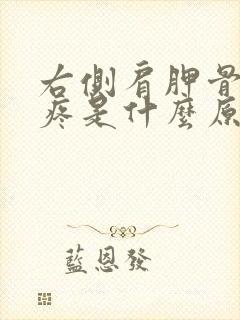 右側肩胛骨
疼是什麼原
藍恩發